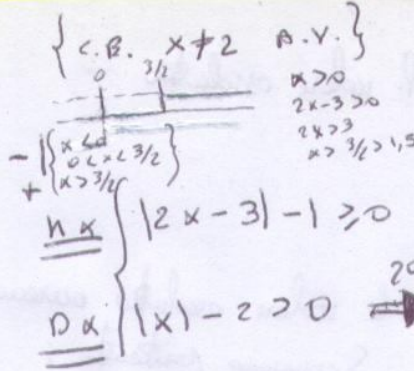 { C.B. x ≠ 2 A.V. }
0 3/2
x > 0
2x - 3 > 0
2x > 3
x > 3/2 > 1,5
- { x < 0
0 < x < 3/2 }
+ x > 3/2
|2x - 3| - 1 ⩾ 0
|x| - 2 > 0